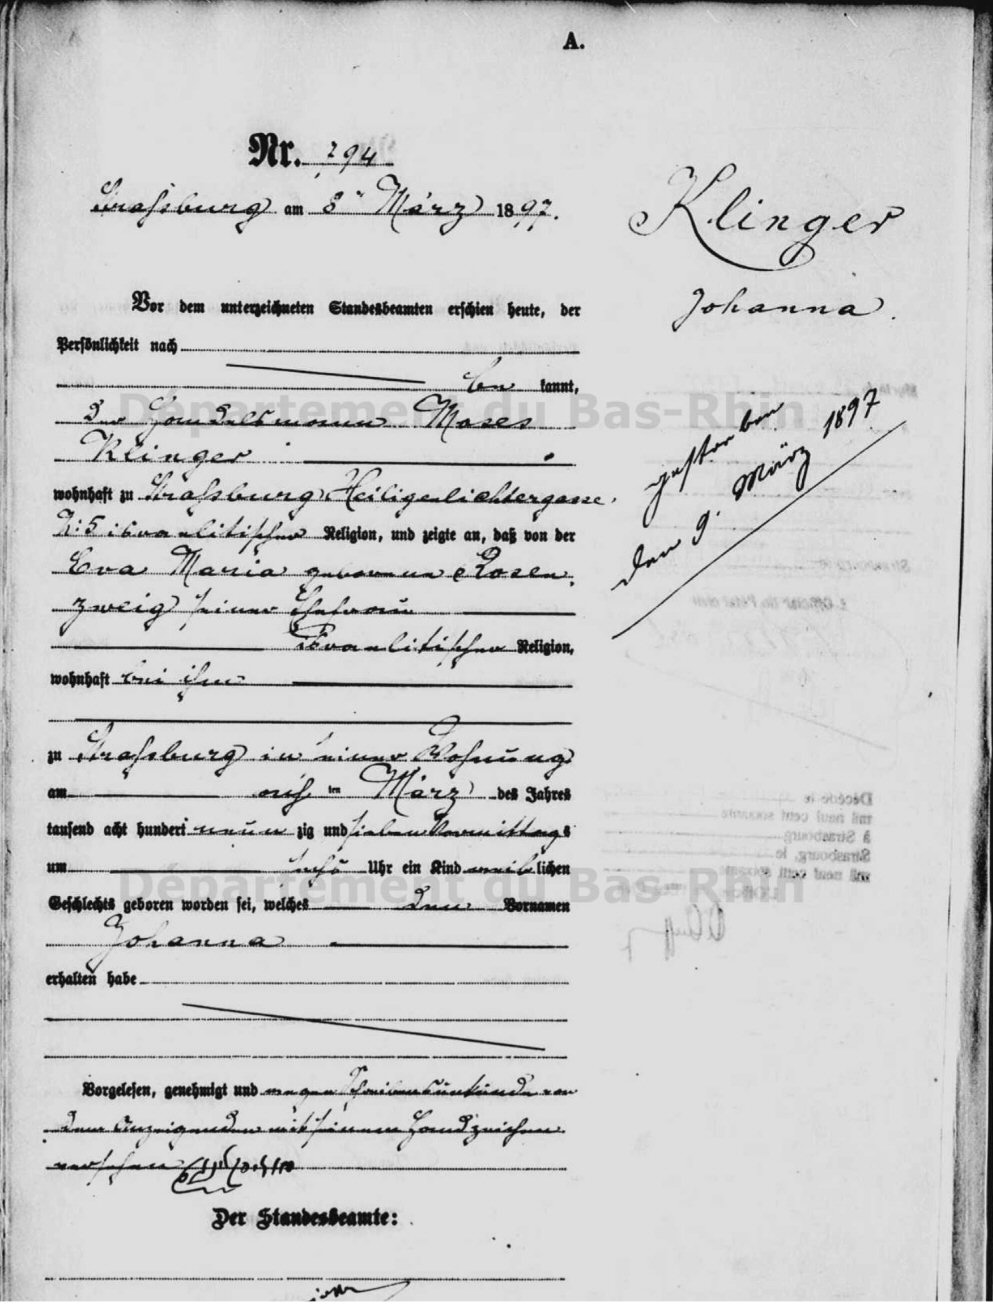 A.
Nr. 794
Strassburg am 8ten März 1897.
Klinger
Johanna.
Vor dem unterzeichneten Standesbeamten erschien heute, der
Persönlichkeit nach
be kannt,
der Handelsmann Moses
Klinger
wohnhaft zu Strassburg Heiligenlichtergasse
N: 5 israelitischer Religion, und zeigte an, daß von der
Eva Maria geborene Rosen
zweig seiner Ehefrau
Israelitischer Religion,
wohnhaft bei ihm
zu Strassburg in seiner Wohnung
am acht ten März des Jahres
tausend acht hundert neun zig und sieben Vormittags
um sechs Uhr ein Kind weib lichen
Geschlechts geboren worden sei, welches den Vornamen
Johanna
erhalten habe
gestorben
den 9. März 1897
Vorgelesen, genehmigt und wegen Schreibensunkunde von
dem Anzeigenden mit seinem Handzeichen
versehen
Der Standesbeamte:
Département du Bas-Rhin
Département du Bas-Rhin